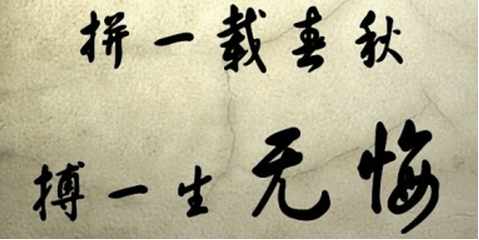 拼一载春秋
搏一生无悔